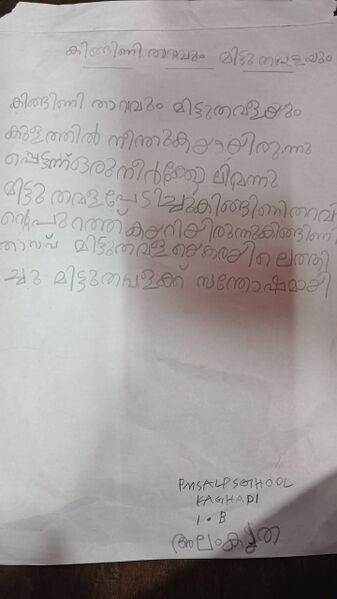 കിങ്ങിണി താറവും മിട്ടു തവളയും
കിങ്ങിണി താറാവും മിട്ടുതവളയും
കുളത്തിൽ നീന്തുകയായിരുന്നു
പ്പെട്ടന്ന്ഒരുനീർക്കോലിവന്നു
മിട്ടു തവളപേടിച്ചുകിങ്ങിണിതാറവി
ന്റെപുറത്ത് കയറിയിരുന്നുകിങ്ങിണി
താറവ് മിട്ടുതവളയെകരയിലെത്തി
ച്ചു മിട്ടുതവളക്ക് സന്തോഷമായി
PMSALPSCHOOL
KAGHADI
1.B
അലംകൃത